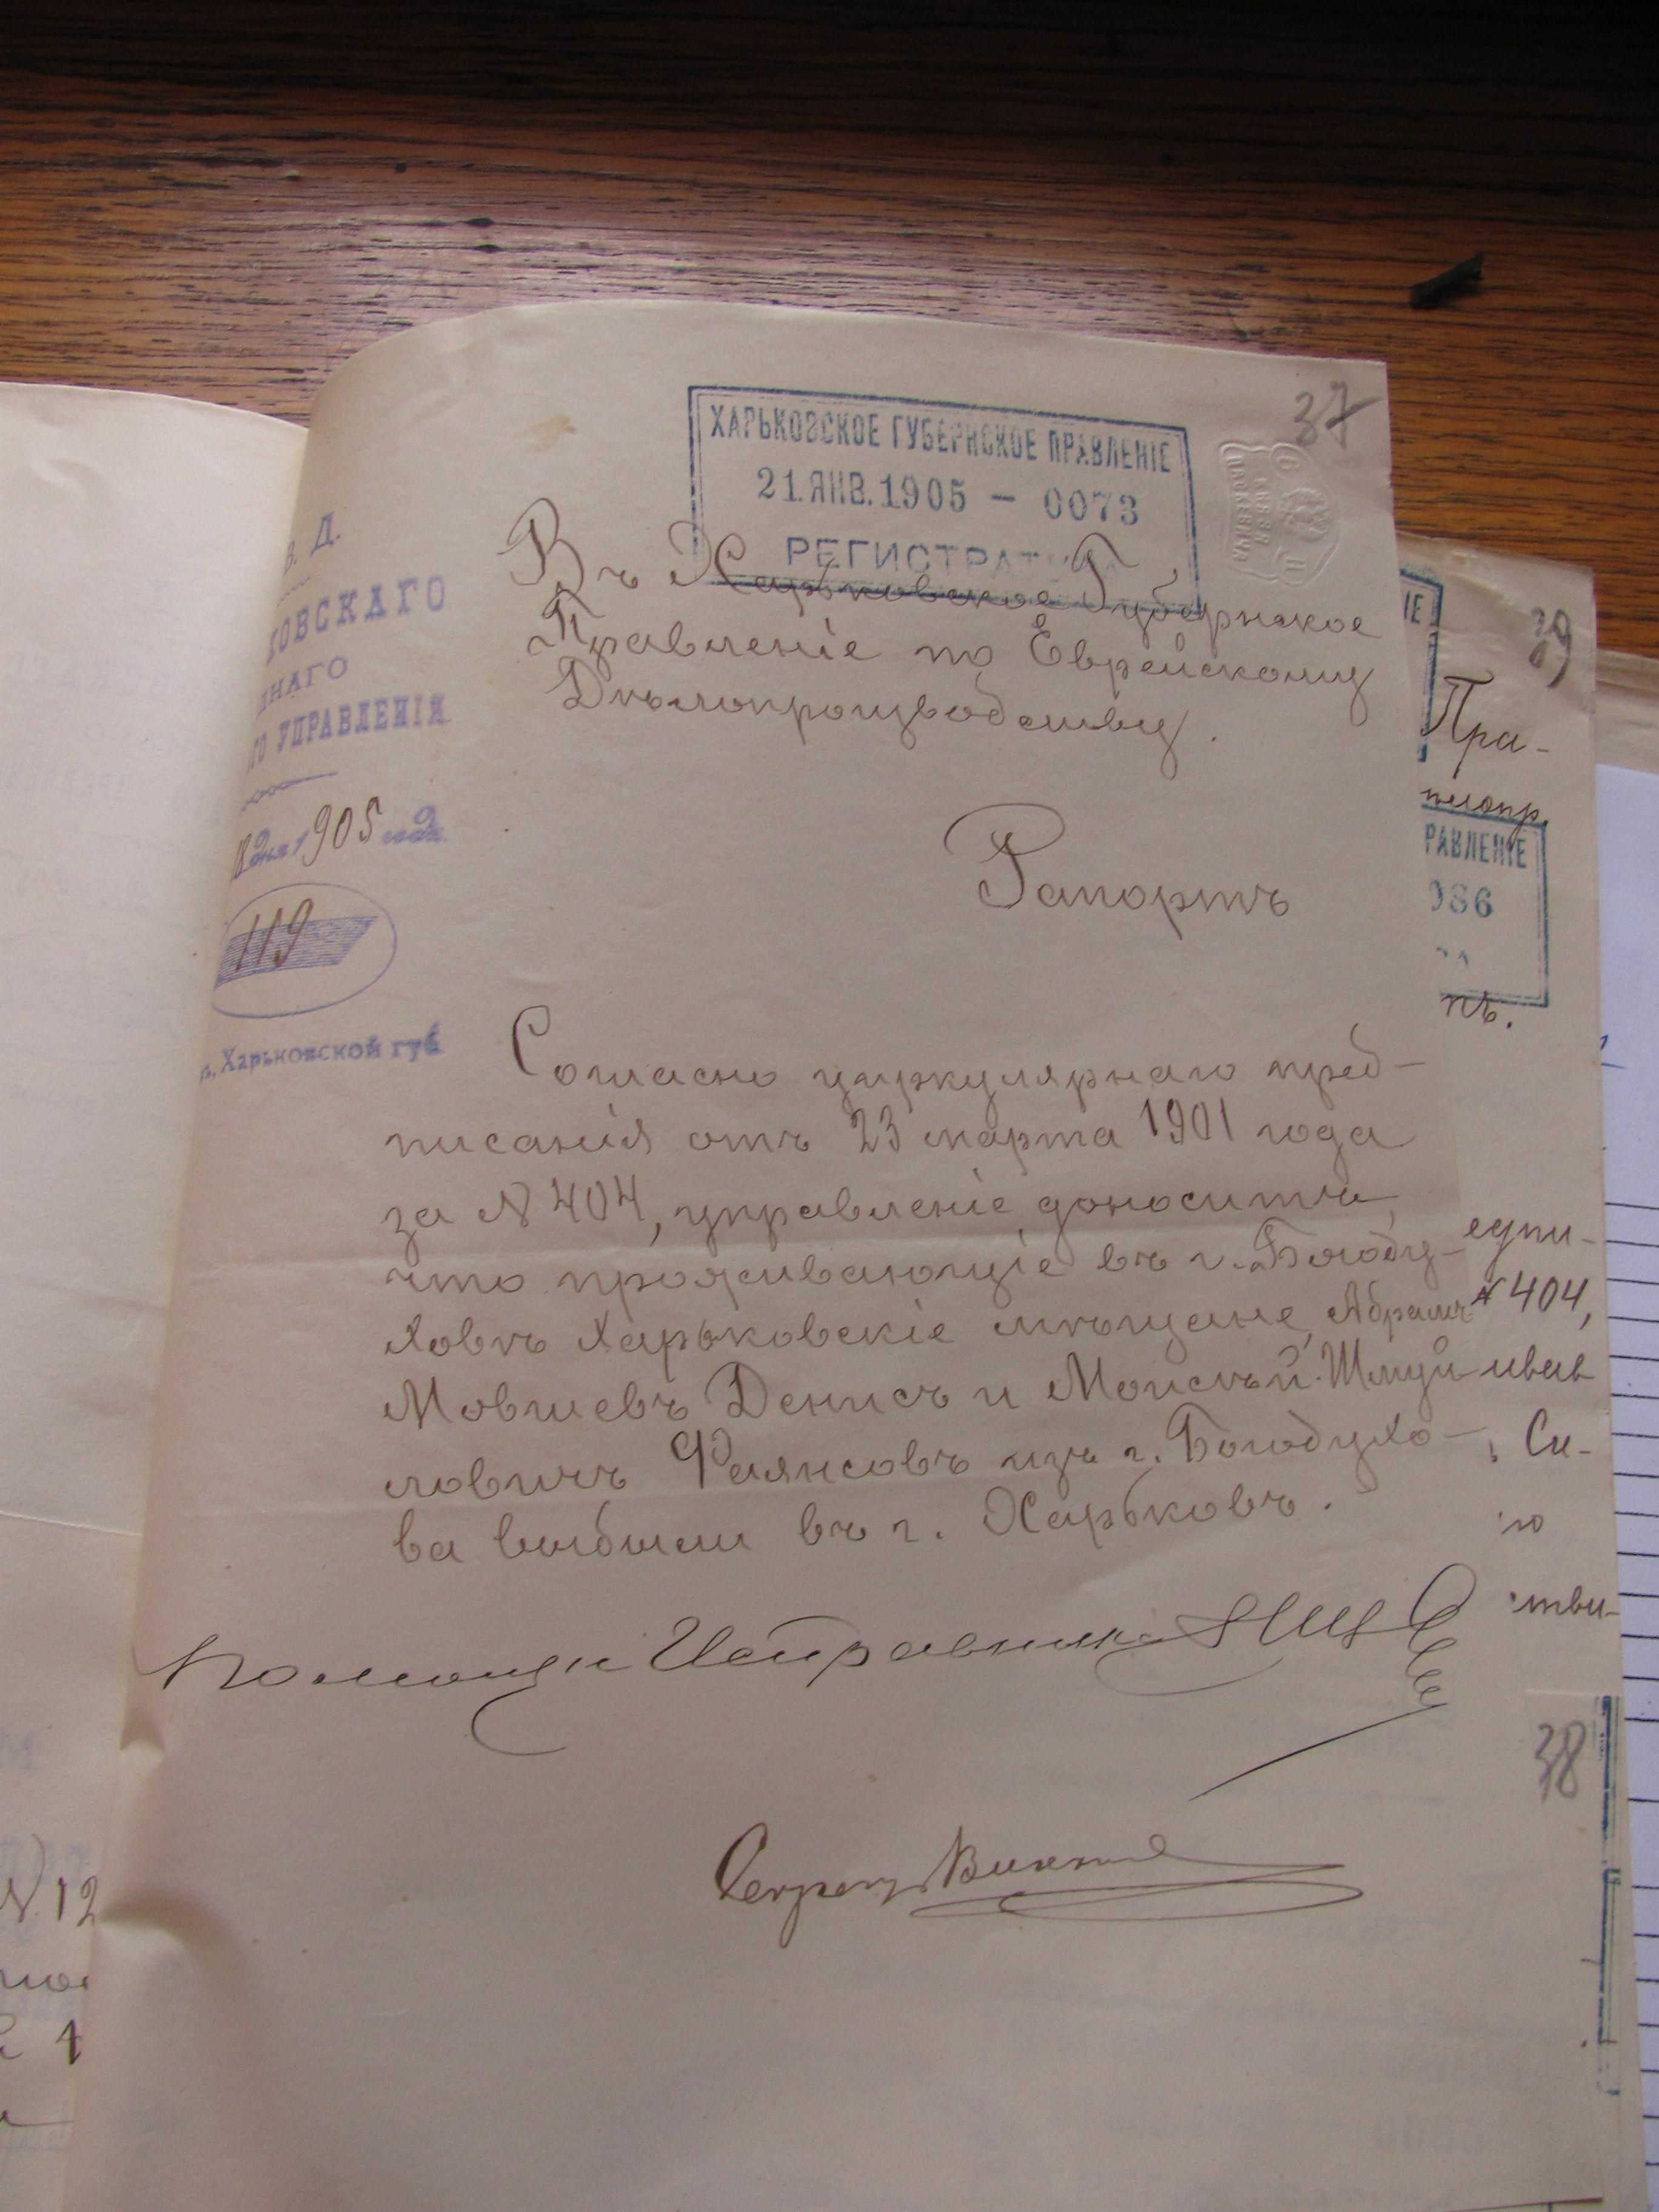 37
ХАРЬКОВСКОЕ ГУБЕРНСКОЕ ПРАВЛЕНІЕ
21.ЯНВ.1905 - 0073
РЕГИСТРАТ
В. Д.
ХОВСКАГО
ДНАГО
ГО УПРАВЛЕНІЯ
18 дня 1905 года
119
Харьковской губ
Въ Харьковское Губернское
Правленіе по Еврейскому
Дѣлопроизводству.
Рапортъ
Согласно циркулярнаго пред-
писанія отъ 23 марта 1901 года
за № 404, управленіе доноситъ,
что проживающіе въ г. Богоду-
ховѣ Харьковскіе мѣщане, Абрамъ
Мовшевъ Денисъ и Моисѣй Шмуй-
ловичъ Фаянсовъ изъ г. Богодухо-
ва выбыли въ г. Харьковъ.
Помощн Исправника
Секрет
39
ІЕ
Пра-
РАВЛЕНІЕ
936
пъ.
едпи-
№ 404,
ивав
Си-
ю
стви-
38
№ 12